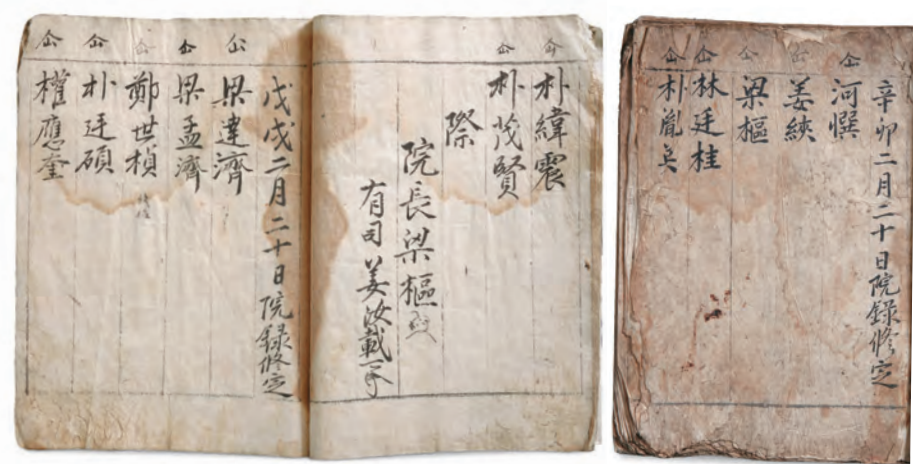 辛卯二月二十日院錄修定
仚 河
仚 姜綊
仚 梁樞
仚 林廷桂
仚 朴胤
仚 朴緯震
仚 朴茂賢
際
院長梁樞
有司姜汝載
戊戌二月二十日院錄修定
仚 梁達濟
仚 梁孟濟
仚 鄭世楨
仚 朴廷碩
仚 權應奎